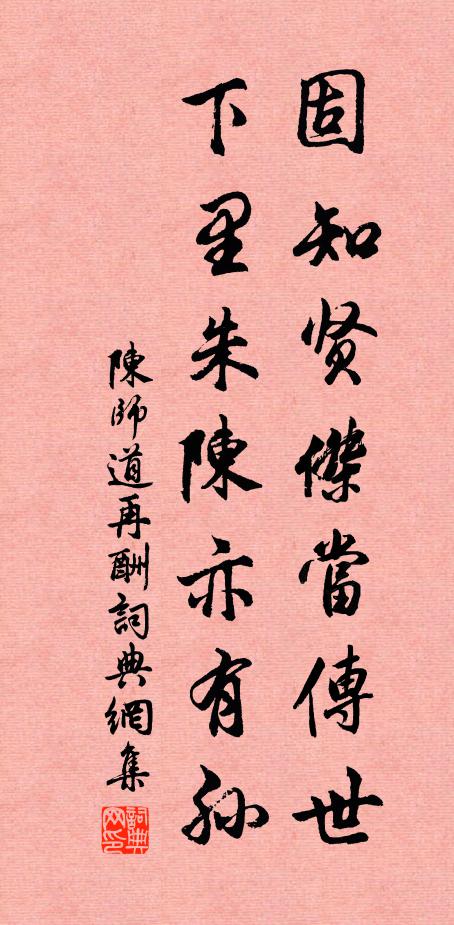 固知贤傑當傳世
下里朱陳亦有孙
陳師道再酬詞典網集
詞典网印